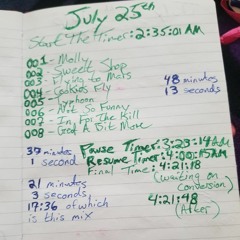 July 25th
Start The Timer: 2:35:01 AM
001 - Molly
002 - Sweet Shop
003 - Flying to Mars
004 - Cookies Fly
005 - Typhoon
006 - Ait So Funny
007 - In For The Kill
008 - Got A Bit More
48 minutes
13 seconds
37 minutes
1 second
Pause Timer: 3:23:14 AM
Resume Timer: 4:00:15 AM
Final Time: 4:21:18
(waiting on
conversion)
21 minutes
3 seconds
17:36 of which
is this mix
4:21:48
(After)